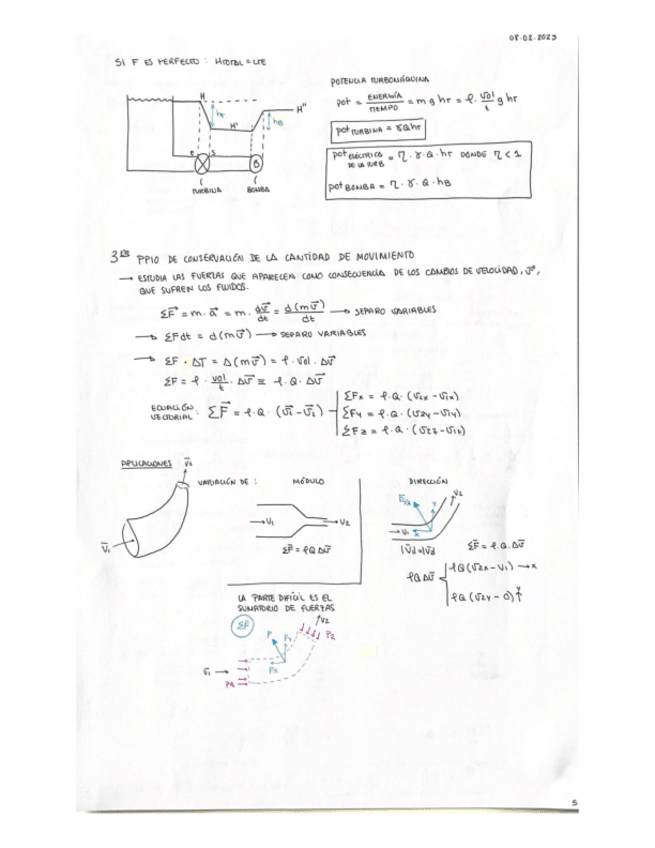 08.02.2023
SI F ES PERFECTO : HTOTAL = CTE
H
hT
H'
H''
hB
E S
B
TURBINA
BOMBA
POTENCIA TURBOMÁQUINA
pot = ENERGÍA / TIEMPO = m g hT = ρ · vol / t g hT
pot TURBINA = γ Q hT
pot ELÉCTRICA DE LA TURB = η · γ · Q · hT DONDE η < 1
pot BOMBA = η · γ · Q · hB
PPIO DE CONSERVACIÓN DE LA CANTIDAD DE MOVIMIENTO
→ ESTUDIA LAS FUERZAS QUE APARECEN COMO CONSECUENCIA DE LOS CAMBIOS DE VELOCIDAD,
QUE SUFREN LOS FLUIDOS.
ΣF⃗ = m · a⃗ = m · dv⃗ / dt = d(mv⃗) / dt → SEPARO VARIABLES
→ ΣF dt = d(mv⃗) → SEPARO VARIABLES
→ ΣF · ΔT = Δ(mv⃗) = ρ · vol · Δv⃗
ΣF = ρ · vol / t · Δv⃗ ≡ ρ · Q · Δv⃗
ECUACIÓN VECTORIAL : ΣF⃗ = ρ · Q · (v⃗2 - v⃗1)
ΣFx = ρ · Q · (v2x - v1x)
ΣFy = ρ · Q · (v2y - v1y)
ΣFz = ρ · Q · (v2z - v1z)
APLICACIONES
V2
V1
VARIACIÓN DE :
MÓDULO
→ V1
→ V2
ΣF⃗ = ρQΔv⃗
DIRECCIÓN
V2
→ V1
ΣF⃗ = ρ · Q · Δv⃗
ρQΔv⃗
ρQ(v2x - v1) → x
ρQ(v2y - 0) ↑ y
LA PARTE DIFÍCIL ES EL
SUMATORIO DE FUERZAS
ΣF
V2
P
Py
P2
Px
V1 →
5